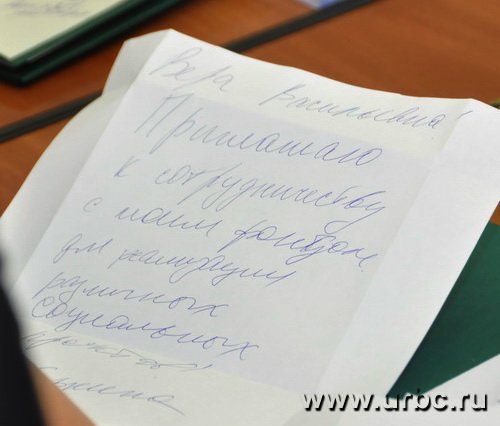 Вера Васильевна!
Приглашаю
к сотрудничеству
с моим фондом
для реализации
различных
социальных
проектов
www.urbc.ru